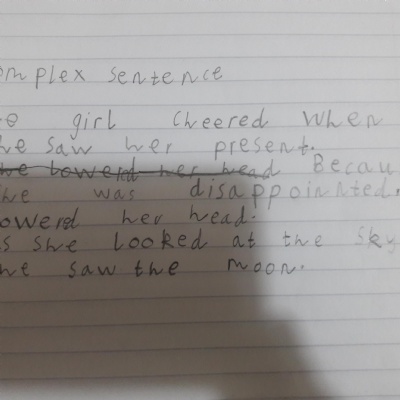 omplex sentence
e girl cheered when
he saw her present.
he lowerd her head Becau
he was disappointed.
owerd her head.
s she looked at the sky
he saw the moon.